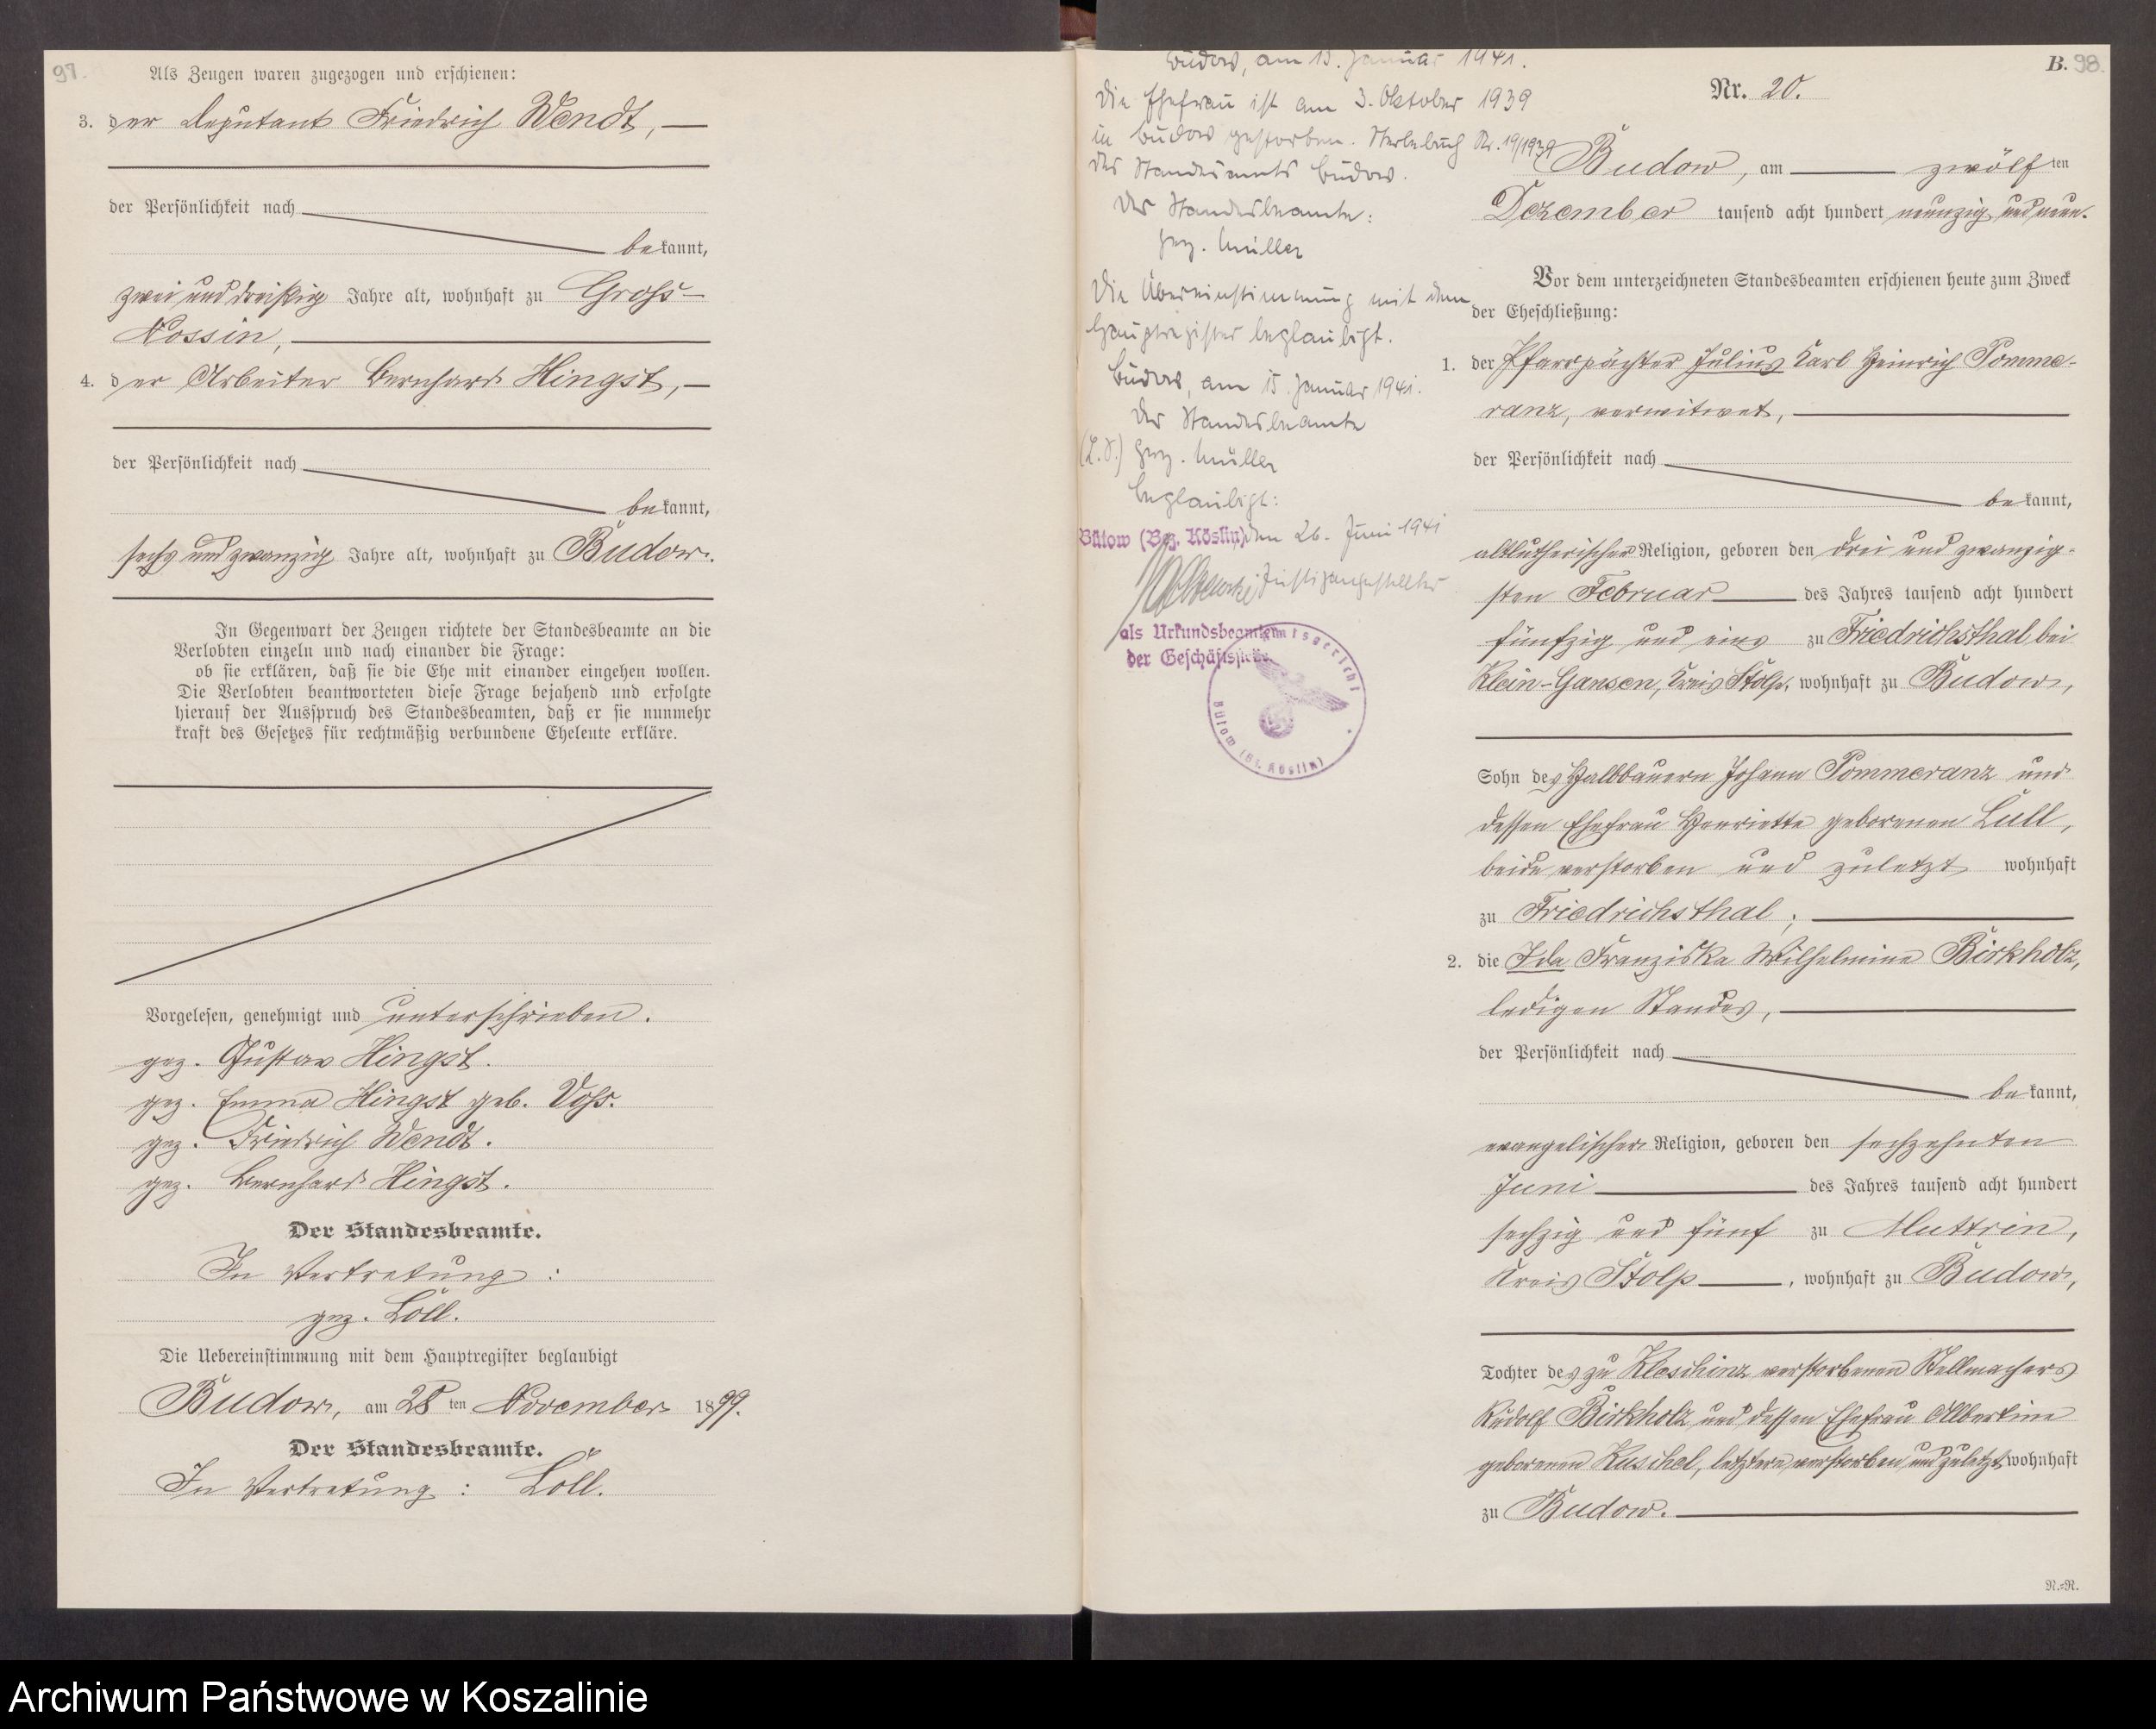 97.
Als Zeugen waren zugezogen und erschienen:
3. der Deputant Friedrich Wendt,
der Persönlichkeit nach
bekannt,
zwei und dreißig Jahre alt, wohnhaft zu Gross-
Nossin,
4. der Arbeiter Bernhard Hingst,
der Persönlichkeit nach
bekannt,
sechs und zwanzig Jahre alt, wohnhaft zu Budow.
In Gegenwart der Zeugen richtete der Standesbeamte an die
Verlobten einzeln und nach einander die Frage:
ob sie erklären, daß sie die Ehe mit einander eingehen wollen.
Die Verlobten beantworteten diese Frage bejahend und erfolgte
hierauf der Ausspruch des Standesbeamten, daß er sie nunmehr
kraft des Gesetzes für rechtmäßig verbundene Eheleute erkläre.
Vorgelesen, genehmigt und unterschrieben.
gez. Gustav Hingst.
gez. Emma Hingst geb. Voß.
gez. Friedrich Wendt.
gez. Bernhard Hingst.
Der Standesbeamte.
In Vertretung:
gez. Löll.
Die Uebereinstimmung mit dem Hauptregister beglaubigt
Budow, am 28ten November 1899.
Der Standesbeamte.
In Vertretung: Löll.
Budow, am 15. Januar 1941.
Die Ehefrau ist am 3. Oktober 1939
in Budow gestorben. Sterbebuch Nr. 19/1939
des Standesamts Budow.
Der Standesbeamte:
gez. Müller
Die Übereinstimmung mit dem
Hauptregister beglaubigt.
Budow, am 15. Januar 1941.
Der Standesbeamte
(L.S.) gez. Müller
beglaubigt:
Bütow (Bez. Köslin), den 26. Juni 1941
Justizangestellter
als Urkundsbeamter
der Geschäftsstelle
Amtsgericht
Bütow (Bz. Köslin)
B. 98.
Nr. 20.
Budow, am zwölften
Dezember tausend acht hundert neunzig und neun.
Vor dem unterzeichneten Standesbeamten erschienen heute zum Zweck
der Eheschließung:
1. der Pfarrpächter Julius Karl Heinrich Pomme-
ranz, verwitwet,
der Persönlichkeit nach
bekannt,
altlutherischer Religion, geboren den drei und zwanzig-
sten Februar des Jahres tausend acht hundert
fünfzig und eins zu Friedrichsthal bei
Klein-Gansen, Kreis Stolp, wohnhaft zu Budow,
Sohn des Halbbauern Johann Pommeranz und
dessen Ehefrau Henriette geborenen Lüll,
beide verstorben und zuletzt wohnhaft
zu Friedrichsthal;
2. die Ida Franziska Wilhelmine Birkholz,
ledigen Standes,
der Persönlichkeit nach
bekannt,
evangelischer Religion, geboren den sechzehnten
Juni des Jahres tausend acht hundert
sechzig und fünf zu Muttrin,
Kreis Stolp, wohnhaft zu Budow,
Tochter des zu Kleschinz verstorbenen Stellmachers
Rudolf Birkholz und dessen Ehefrau Albertine
geborenen Kuschel, letztere verstorben und zuletzt wohnhaft
zu Budow.
N.=N.
Archiwum Państwowe w Koszalinie